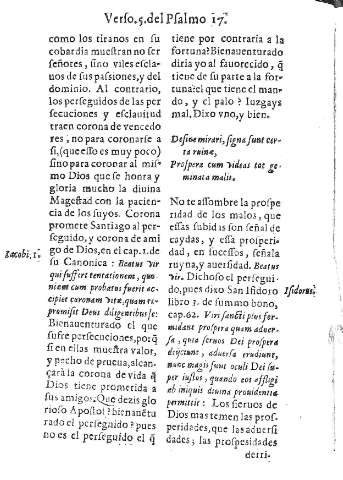 Verso.5.del Psalmo 17.
como los tiranos en su
cobardia muestran no ser
señores, sino viles escla-
uos de sus passiones, y del
dominio. Al contrario,
los perseguidos de las per
secuciones y esclauitud
traen corona de vencedo
res, no para coronarse a
si, (que esso es muy poco)
sino para coronar al mis-
mo Dios que se honra y
gloria mucho la diuina
Magestad con la pacien-
cia de los suyos. Corona
promete Santiago al per-
seguido, y corona de ami
go de Dios, en el cap. 1. de
Iacobi, 1.
su Canonica: Beatus vir
qui suffert tentationem, quo-
niam cum probatus fuerit ac-
cipiet coronam vitæ, quam re-
promisit Deus diligentibus se:
Bienauenturado el que
sufre persecuciones, porq̃
si en ellas muestra valor,
y pacho de prueua, alcan-
çarà la corona de vida q̃
Dios tiene prometida a
sus amigos. Que dezis glo
rioso Apostol? bienauẽtu
rado el perseguido? pues
no es el perseguido el q̃
tiene por contraria a la
fortuna? Bienauenturado
diria yo al fauorecido, q̃
tiene de su parte a la for-
tuna: el que tiene el man-
do, y el palo? Iuzgays
mal. Dixo vno, y bien.
Desine mirari, signa sunt cer-
ta ruinæ,
Prospera cum videas tot ge-
minata malis.
No te assombre la prospe
ridad de los malos, que
essas subidas son señal de
caydas, y essa prosperi-
dad, en sucessos, señala
ruyna, y auersidad. Beatus
vir. Dichoso el persegui-
do, pues dixo San Isidoro
Isidorus.
libro 3. de summo bono,
cap. 62. Viri sancti plus for-
midant prospera quam aduer-
sa, quia seruos Dei prospera
deijciunt, aduersa erudiunt,
nunc magis sunt oculi Dei su-
per iustos, quando eos affligi
ab iniquis diuina prouidentia
permittit: Los sieruos de
Dios mas temen las pros-
peridades, que las aduersi
dades; las prosperidades
derri-